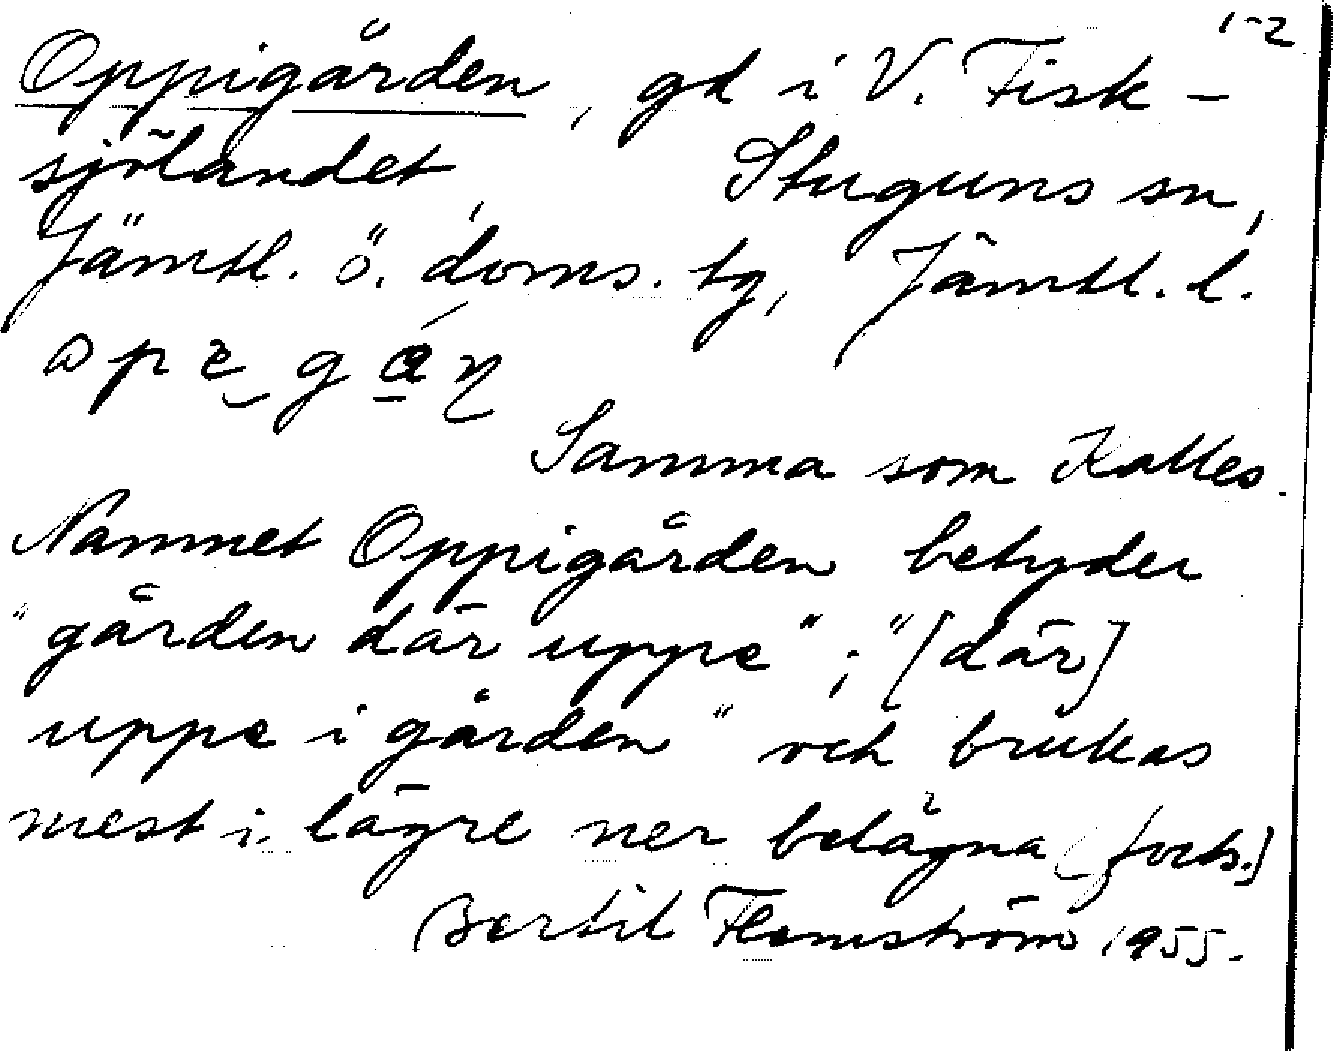 1-2
Oppigården, gd i V. Fisk-
sjölandet, Stuguns sn,
Jämtl. ö. doms. tg, Jämtl. l.
Samma som Kalles.
Namnet Oppigården betyder
"gården där uppe"; "[där]
uppe i gården" och brukas
mest i lägre ner belägna (forts.)
Bertil Flemström 1955.